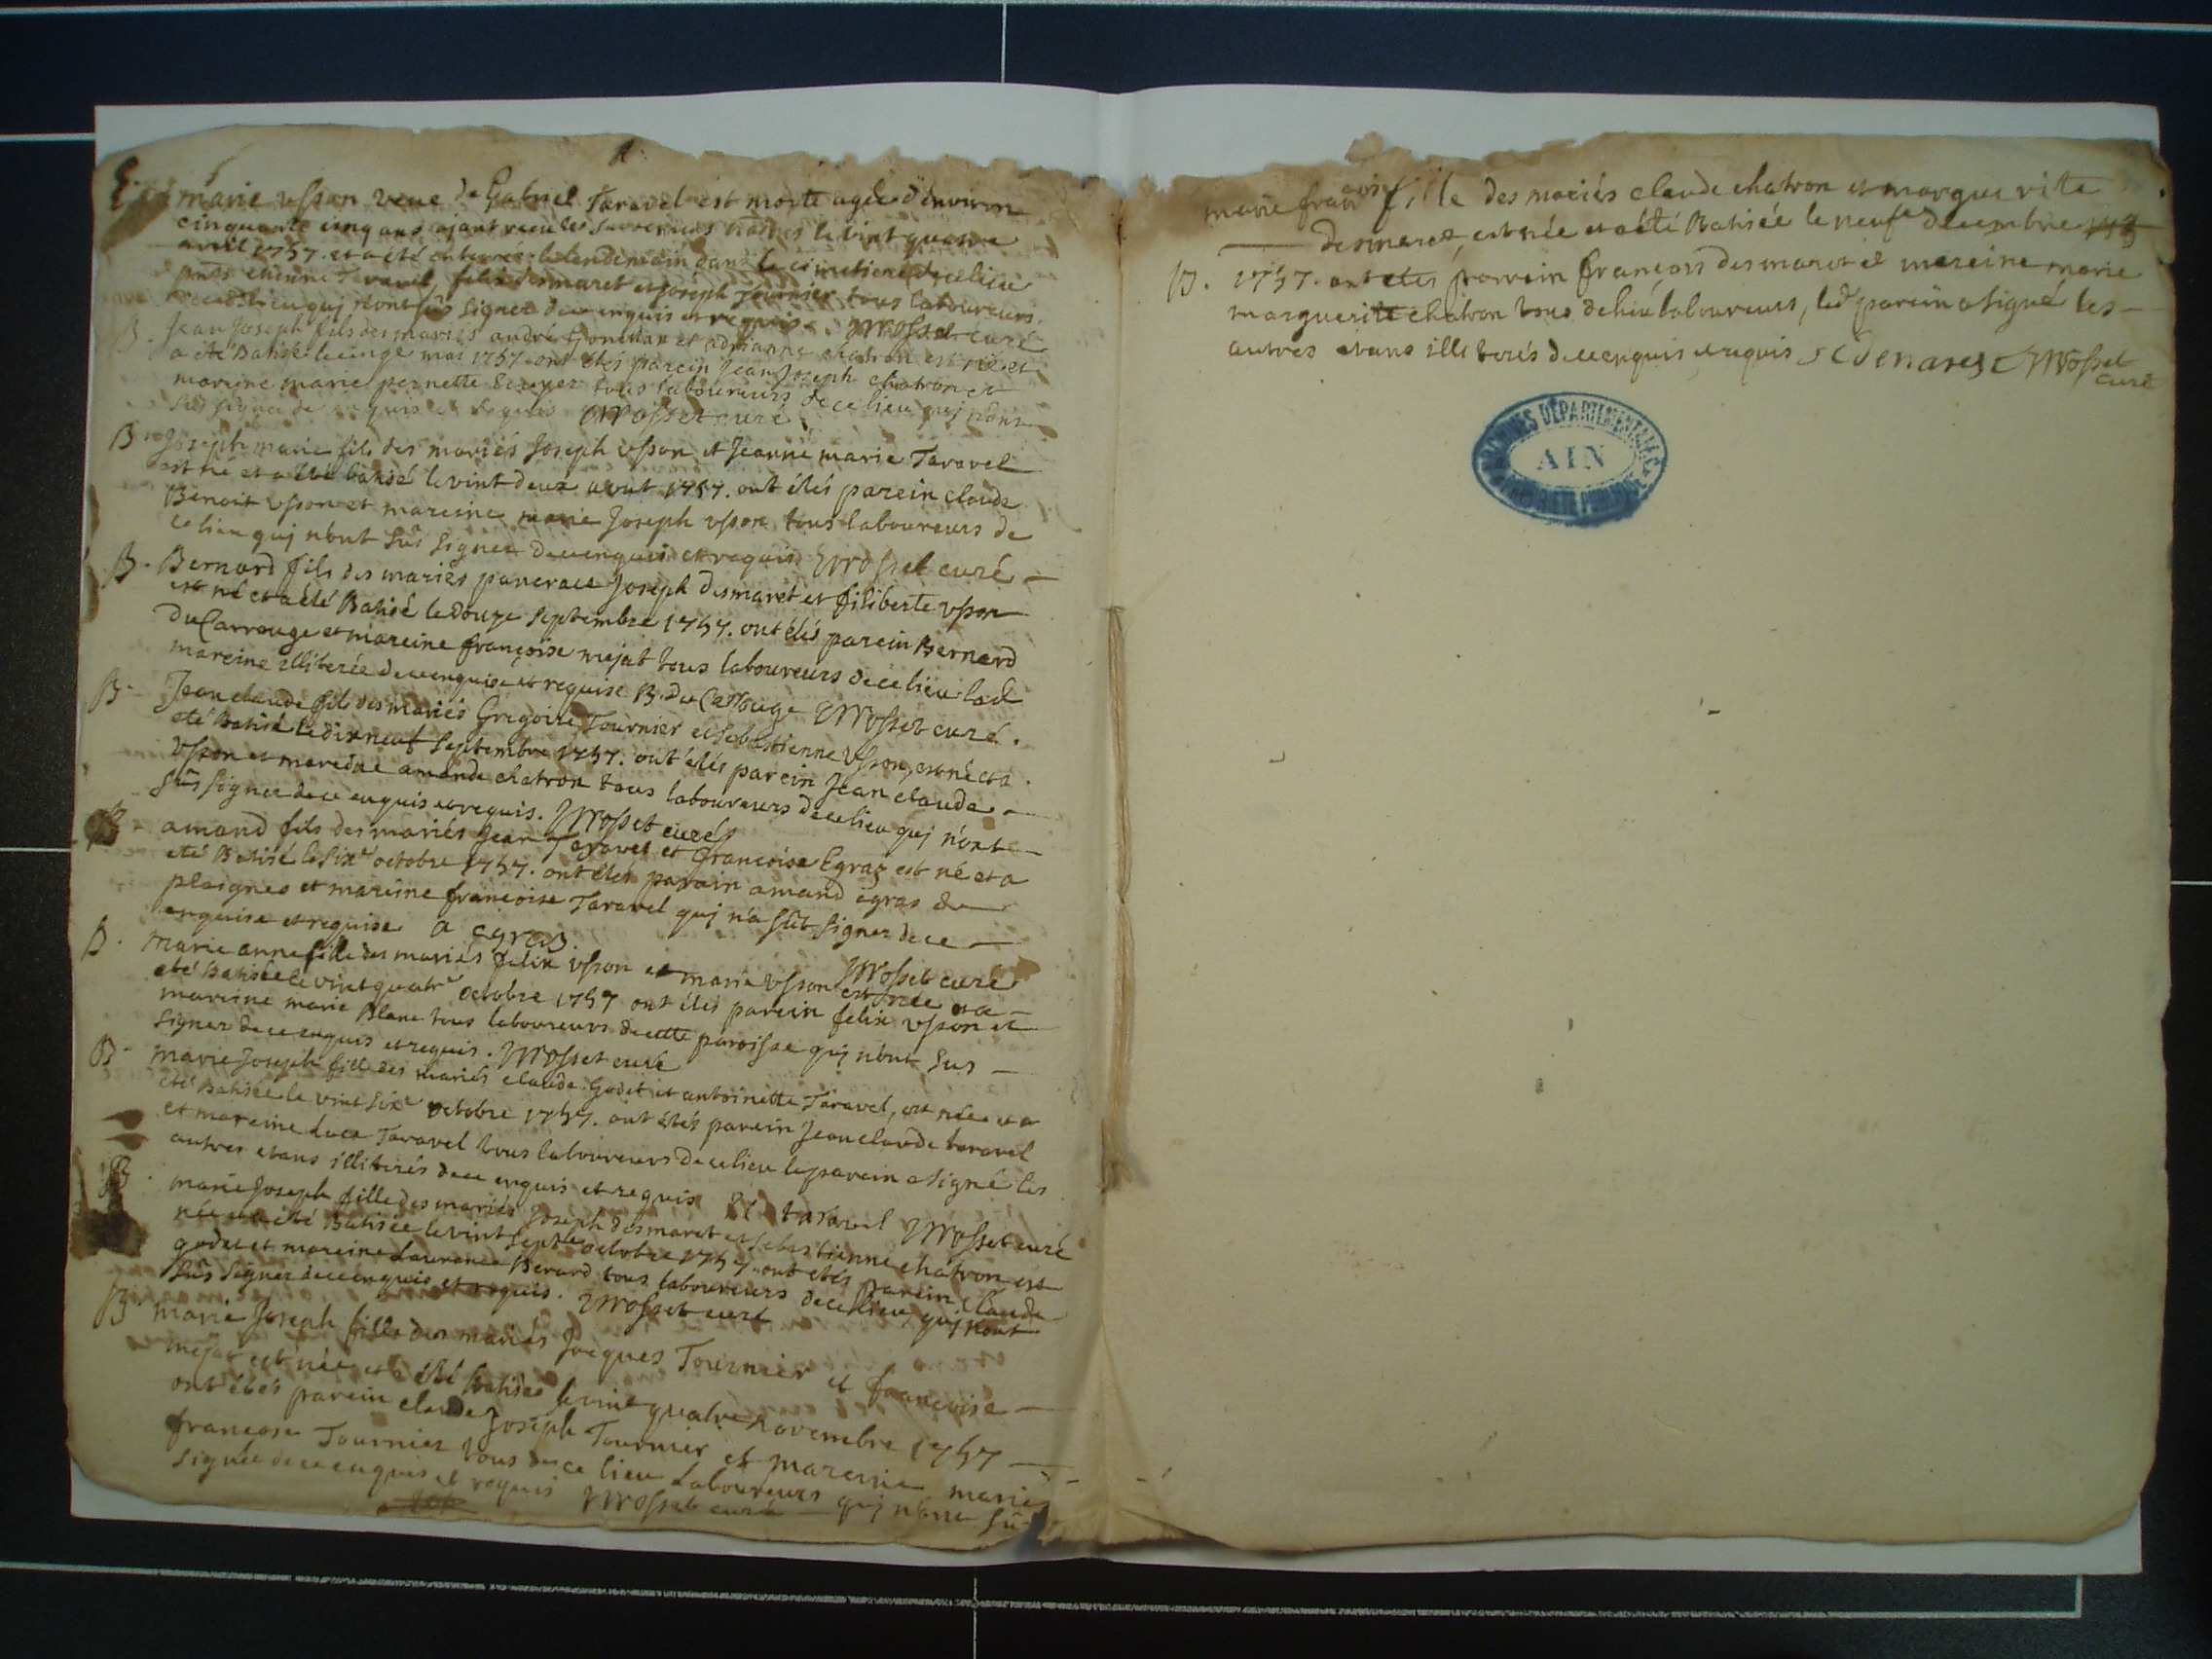 marie usson veuve de Gabriel Taravel est morte agée d'environ
cinquante cinq ans ajant recu les sacremens le vint quatre
avril 1757. et a été enterrée le lendemain dans le cimetiere de ce lieu
pnts etienne Taravel, felix desmaret et joseph Tournier tous laboureurs
de ce dt lieu quj n'ont sus signer de ce enquis et requis. Mosset curé
B. Jean Joseph fils des mariés andré et adrianne chatron est né et
a été Batisé le mai 1757. ont étés parein Jean Joseph chatron et
mareine marie pernette tous laboureurs de ce lieu quj n'ont
sus signer de ce enquis et requis Mosset curé
B. Joseph marie fils des mariés Joseph usson et Jeanne marie Taravel
est né et a été batisé le vint deux aout 1757. ont étés parein claude
Benoit usson et mareine marie Joseph usson tous laboureurs de
ce lieu quj n'ont sus signer de ce enquis et requis Mosset curé
B. Bernard fils des mariés pancrace Joseph desmaret et filiberte usson
est né et a été Batisé le douze septembre 1757. ont étés parein Bernard
du Carrouge et mareine françoise mejat tous laboureurs de ce lieu lad
mareine illiterée de ce enquise et requise B. du Carrouge Mosset curé.
B. Jean claude fils des mariés Gregoire Tournier et sebastienne usson, est né et a
été Batisé le dixneuf septembre 1757. ont étés parein Jean claude
usson et mareine amande chatron tous laboureurs de ce lieu quj n'ont
sus signer de ce enquis et requis. Mosset curé
B. amand fils des mariés Jean Taravel et françoise Egraz est né et a
été Batisé le sixe octobre 1757. ont étés parein amand egras de
plaignes et mareine françoise Taravel quj n'a sut signer de ce
enquise et requise a egras. Mosset curé
B. marie anne fille des mariés felix usson et marie usson est née et a
été Batisée le vint quatre octobre 1757 ont étés parein felix usson et
mareine marie Blanc tous laboureurs de cette paroisse quj n'ont sus
signer de ce enquis et requis. Mosset curé
B. marie Joseph fille des mariés claude Godet et antoinette Taravel, est née et a
été Batisée le vint sixe octobre 1757. ont étés parein Jean claude taravel
et mareine Luce Taravel tous laboureurs de ce lieu le parein a signé les
autres etans illiterés de ce enquis et requis taravel Mosset curé
B. marie Joseph fille des mariés Joseph desmaret et sebastienne chatron est
née et a été Batisée le vint septe octobre 1757. ont étés parein claude
godet et mareine Laurence Berard tous laboureurs de ce lieu quj n'ont
sus signer de ce enquis et requis. Mosset curé
B. marie Joseph fille des mariés Jacques Tournier et françoise
mejat est née et a été Batisée le vint quatre novembre 1757
ont étés parein claude Joseph Tournier et mareine marie
françoise Tournier tous de ce lieu Laboureurs quj n'ont su
signer de ce enquis et requis Mosset curé
marie françoise fille des mariés claude chatron et marguerite
desmaret, est née et a été Batisée le neufe decembre
B. 1757. ont etes parrein françois desmaret et mareine marie
marguerite chatron tous de lieu laboureurs, led parein a signé les
autres etans illiterés de ce enquis et requis Mosset
curé
ARCHIVES DÉPARTEMENTALES
AIN